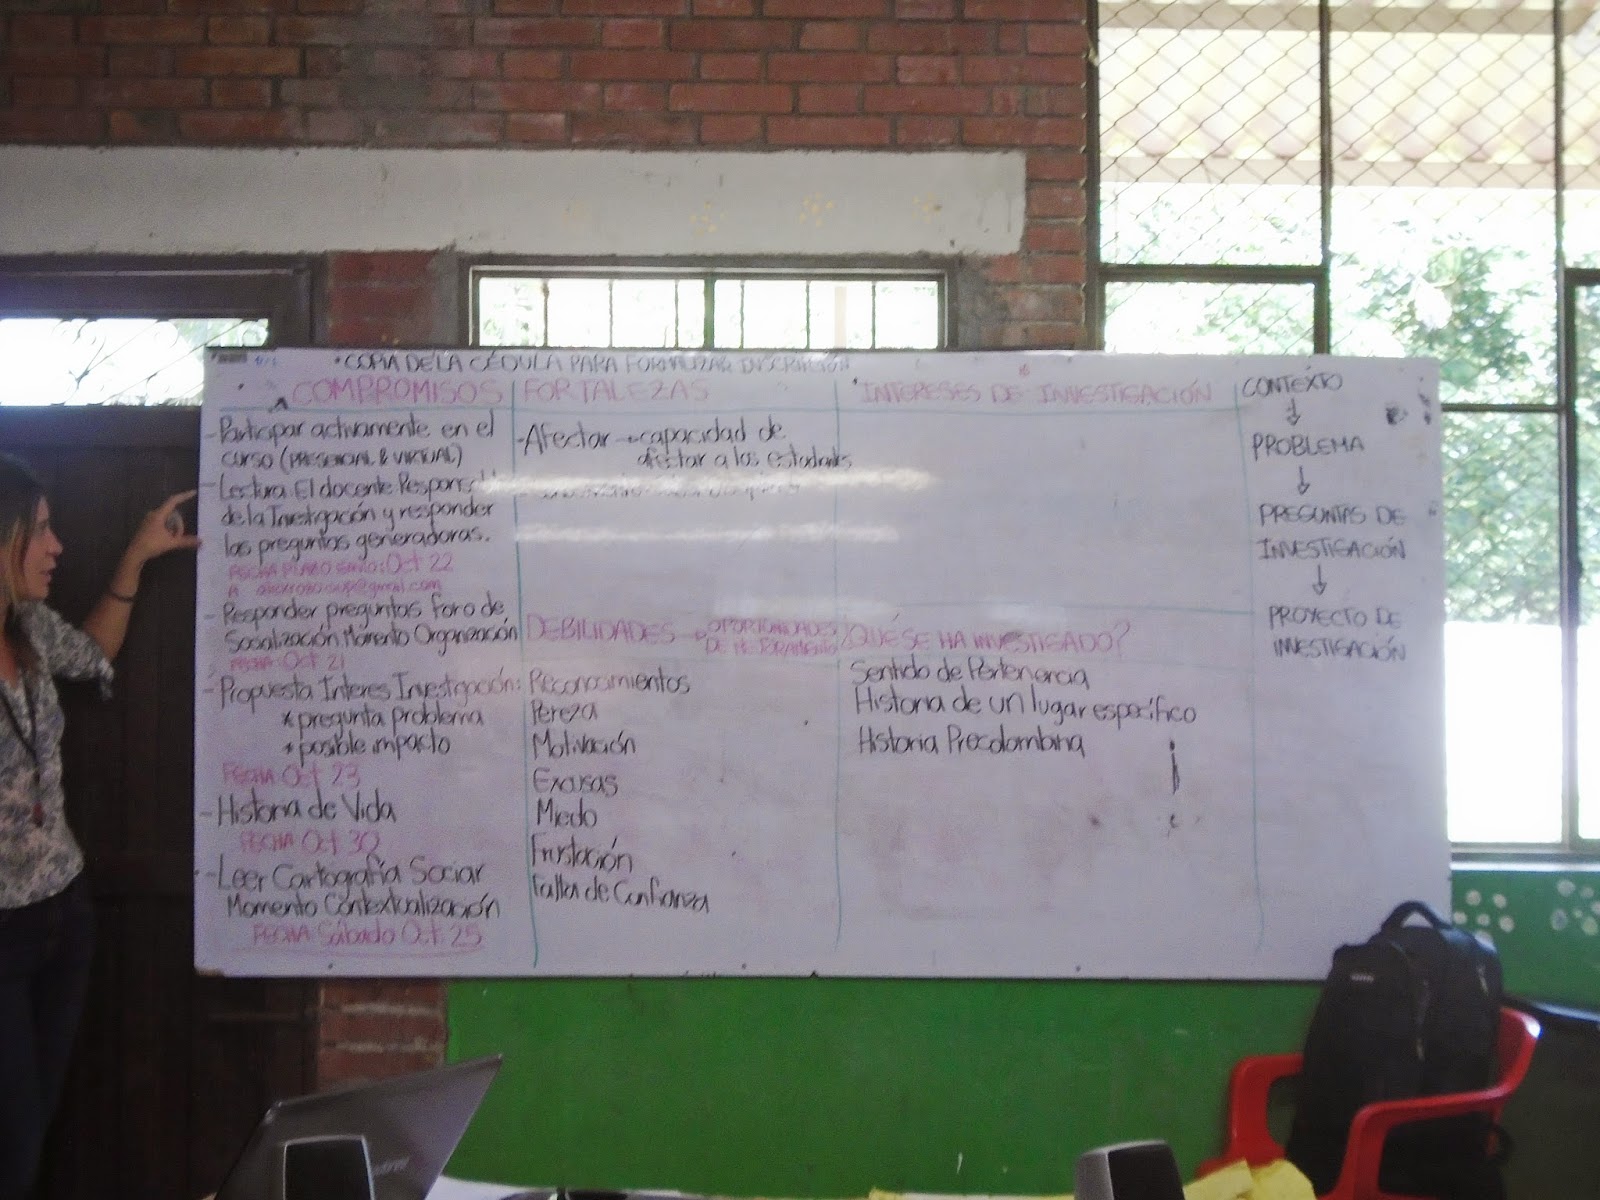 * COPIA DE LA CÉDULA PARA FORMALIZAR INSCRIPCIÓN
COMPROMISOS
- Participar activamente en el
curso (PRESENCIAL & VIRTUAL)
- Lectura: El docente Responsable
de la Investigación y responder
las preguntas generadoras.
FECHA PLAZO ENVIO: Oct 22
- Responder preguntas foro de
Socialización Momento Organización
FECHA: Oct 21
- Propuesta Interes Investigación:
* pregunta problema
* posible impacto
FECHA Oct 23
- Historia de Vida
FECHA: Oct 30
- Leer Cartografía Social
Momento Contextualización
FECHA: Sábado Oct 25
FORTALEZAS
- Afectar → capacidad de
afectar a los estudiantes
DEBILIDADES → OPORTUNIDADES
DE MEJORAMIENTO
Reconocimientos
Pereza
Motivación
Excusas
Miedo
Frustación
Falla de Confianza
* INTERESES DE INVESTIGACIÓN
¿QUÉ SE HA INVESTIGADO?
Sentido de Pertenencia
Historia de un lugar específico
Historia Precolombina
CONTEXTO
↓
PROBLEMA
↓
PREGUNTAS DE
INVESTIGACIÓN
↓
PROYECTO DE
INVESTIGACIÓN